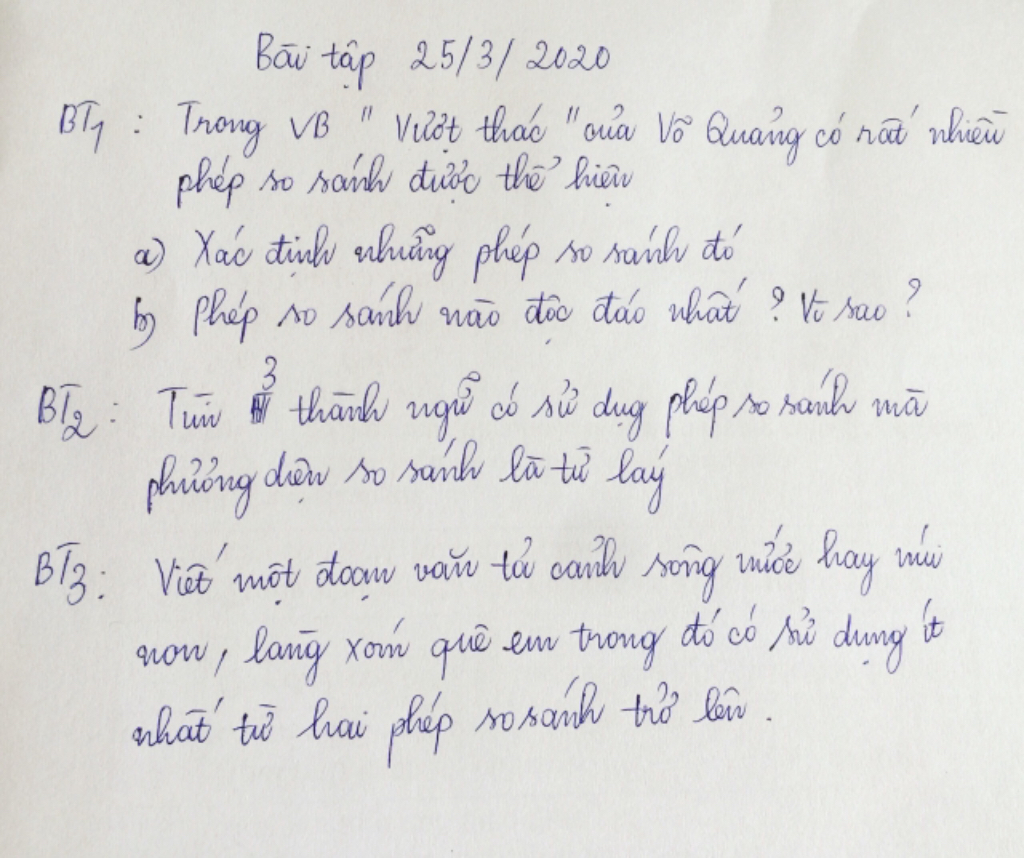 Bài tập 25/3/2020
BT1 : Trong VB " Vượt thác " của Võ Quảng có rất nhiều
phép so sánh được thể hiện
a) Xác định những phép so sánh đó
b) Phép so sánh nào độc đáo nhất ? Vì sao ?
BT2 : Tìm 3 thành ngữ có sử dụg phép so sánh mà
phương diện so sánh là từ láy
BT3 : Viết một đoạn văn tả cảnh sông nước hay núi
non, làng xóm quê em trong đó có sử dụng ít
nhất từ hai phép so sánh trở lên .